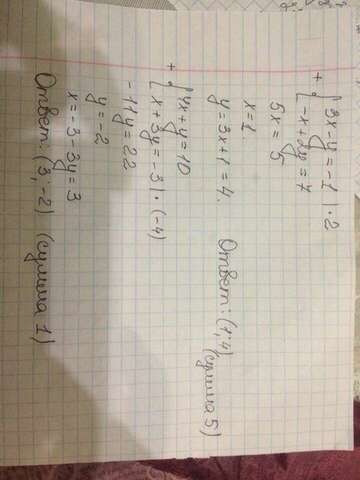 + { 3x - y = -1 | · 2
-x + 2y = 7
5x = 5
x = 1
y = 3x + 1 = 4.
Ответ: (1; 4)
(сумма 5)
+ { 4x + y = 10
x + 3y = -3 | · (-4)
-11y = 22
y = -2
x = -3 - 3y = 3
Ответ: (3; -2) (сумма 1)